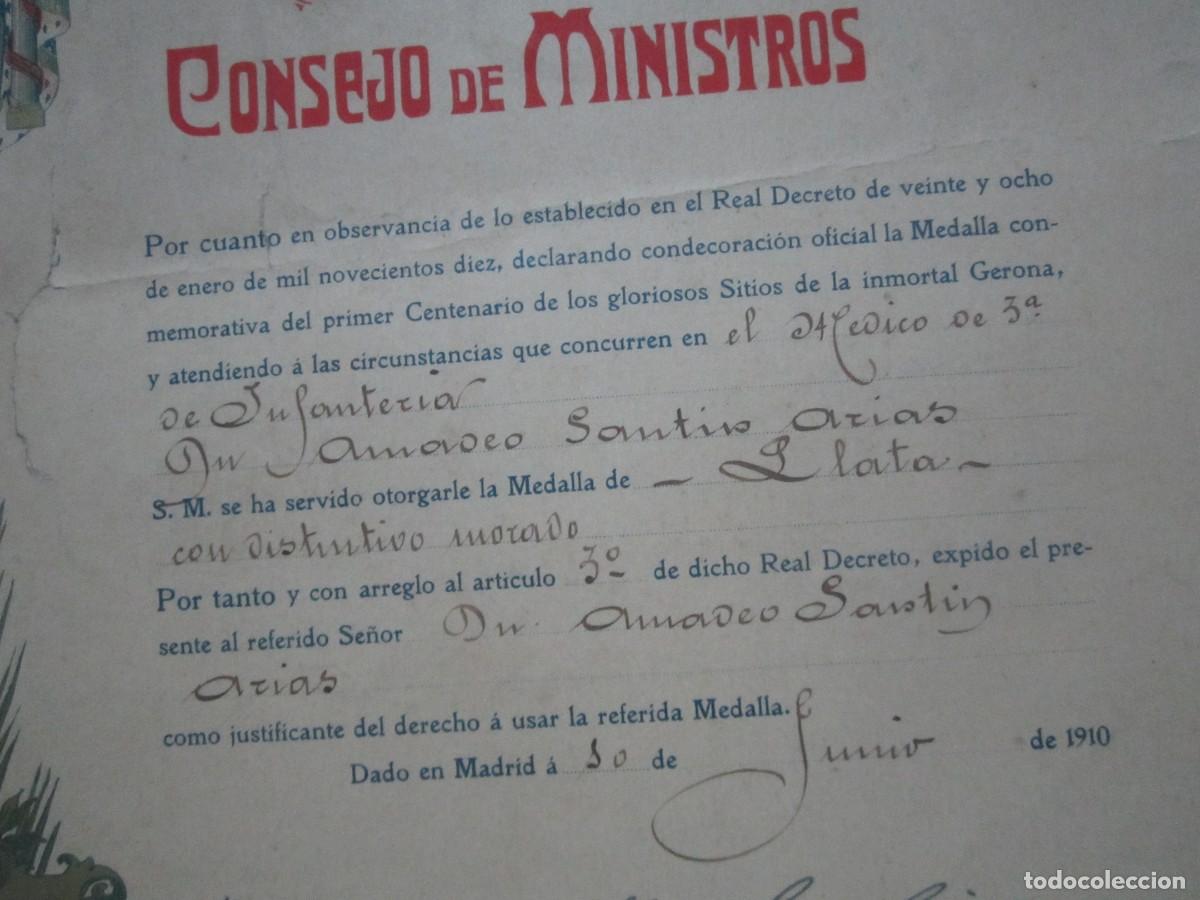 CONSEJO DE MINISTROS
Por cuanto en observancia de lo establecido en el Real Decreto de veinte y ocho
de enero de mil novecientos diez, declarando condecoración oficial la Medalla con-
memorativa del primer Centenario de los gloriosos Sitios de la inmortal Gerona,
y atendiendo á las circunstancias que concurren en el Medico de 3ª
de Infanteria
Dn Amadeo Santin Arias
S. M. se ha servido otorgarle la Medalla de – Plata –
con distintivo morado
Por tanto y con arreglo al articulo 3º de dicho Real Decreto, expido el pre-
sente al referido Señor Dn. Amadeo Santin
Arias
como justificante del derecho á usar la referida Medalla.
Dado en Madrid á de Junio de 1910
todocoleccion